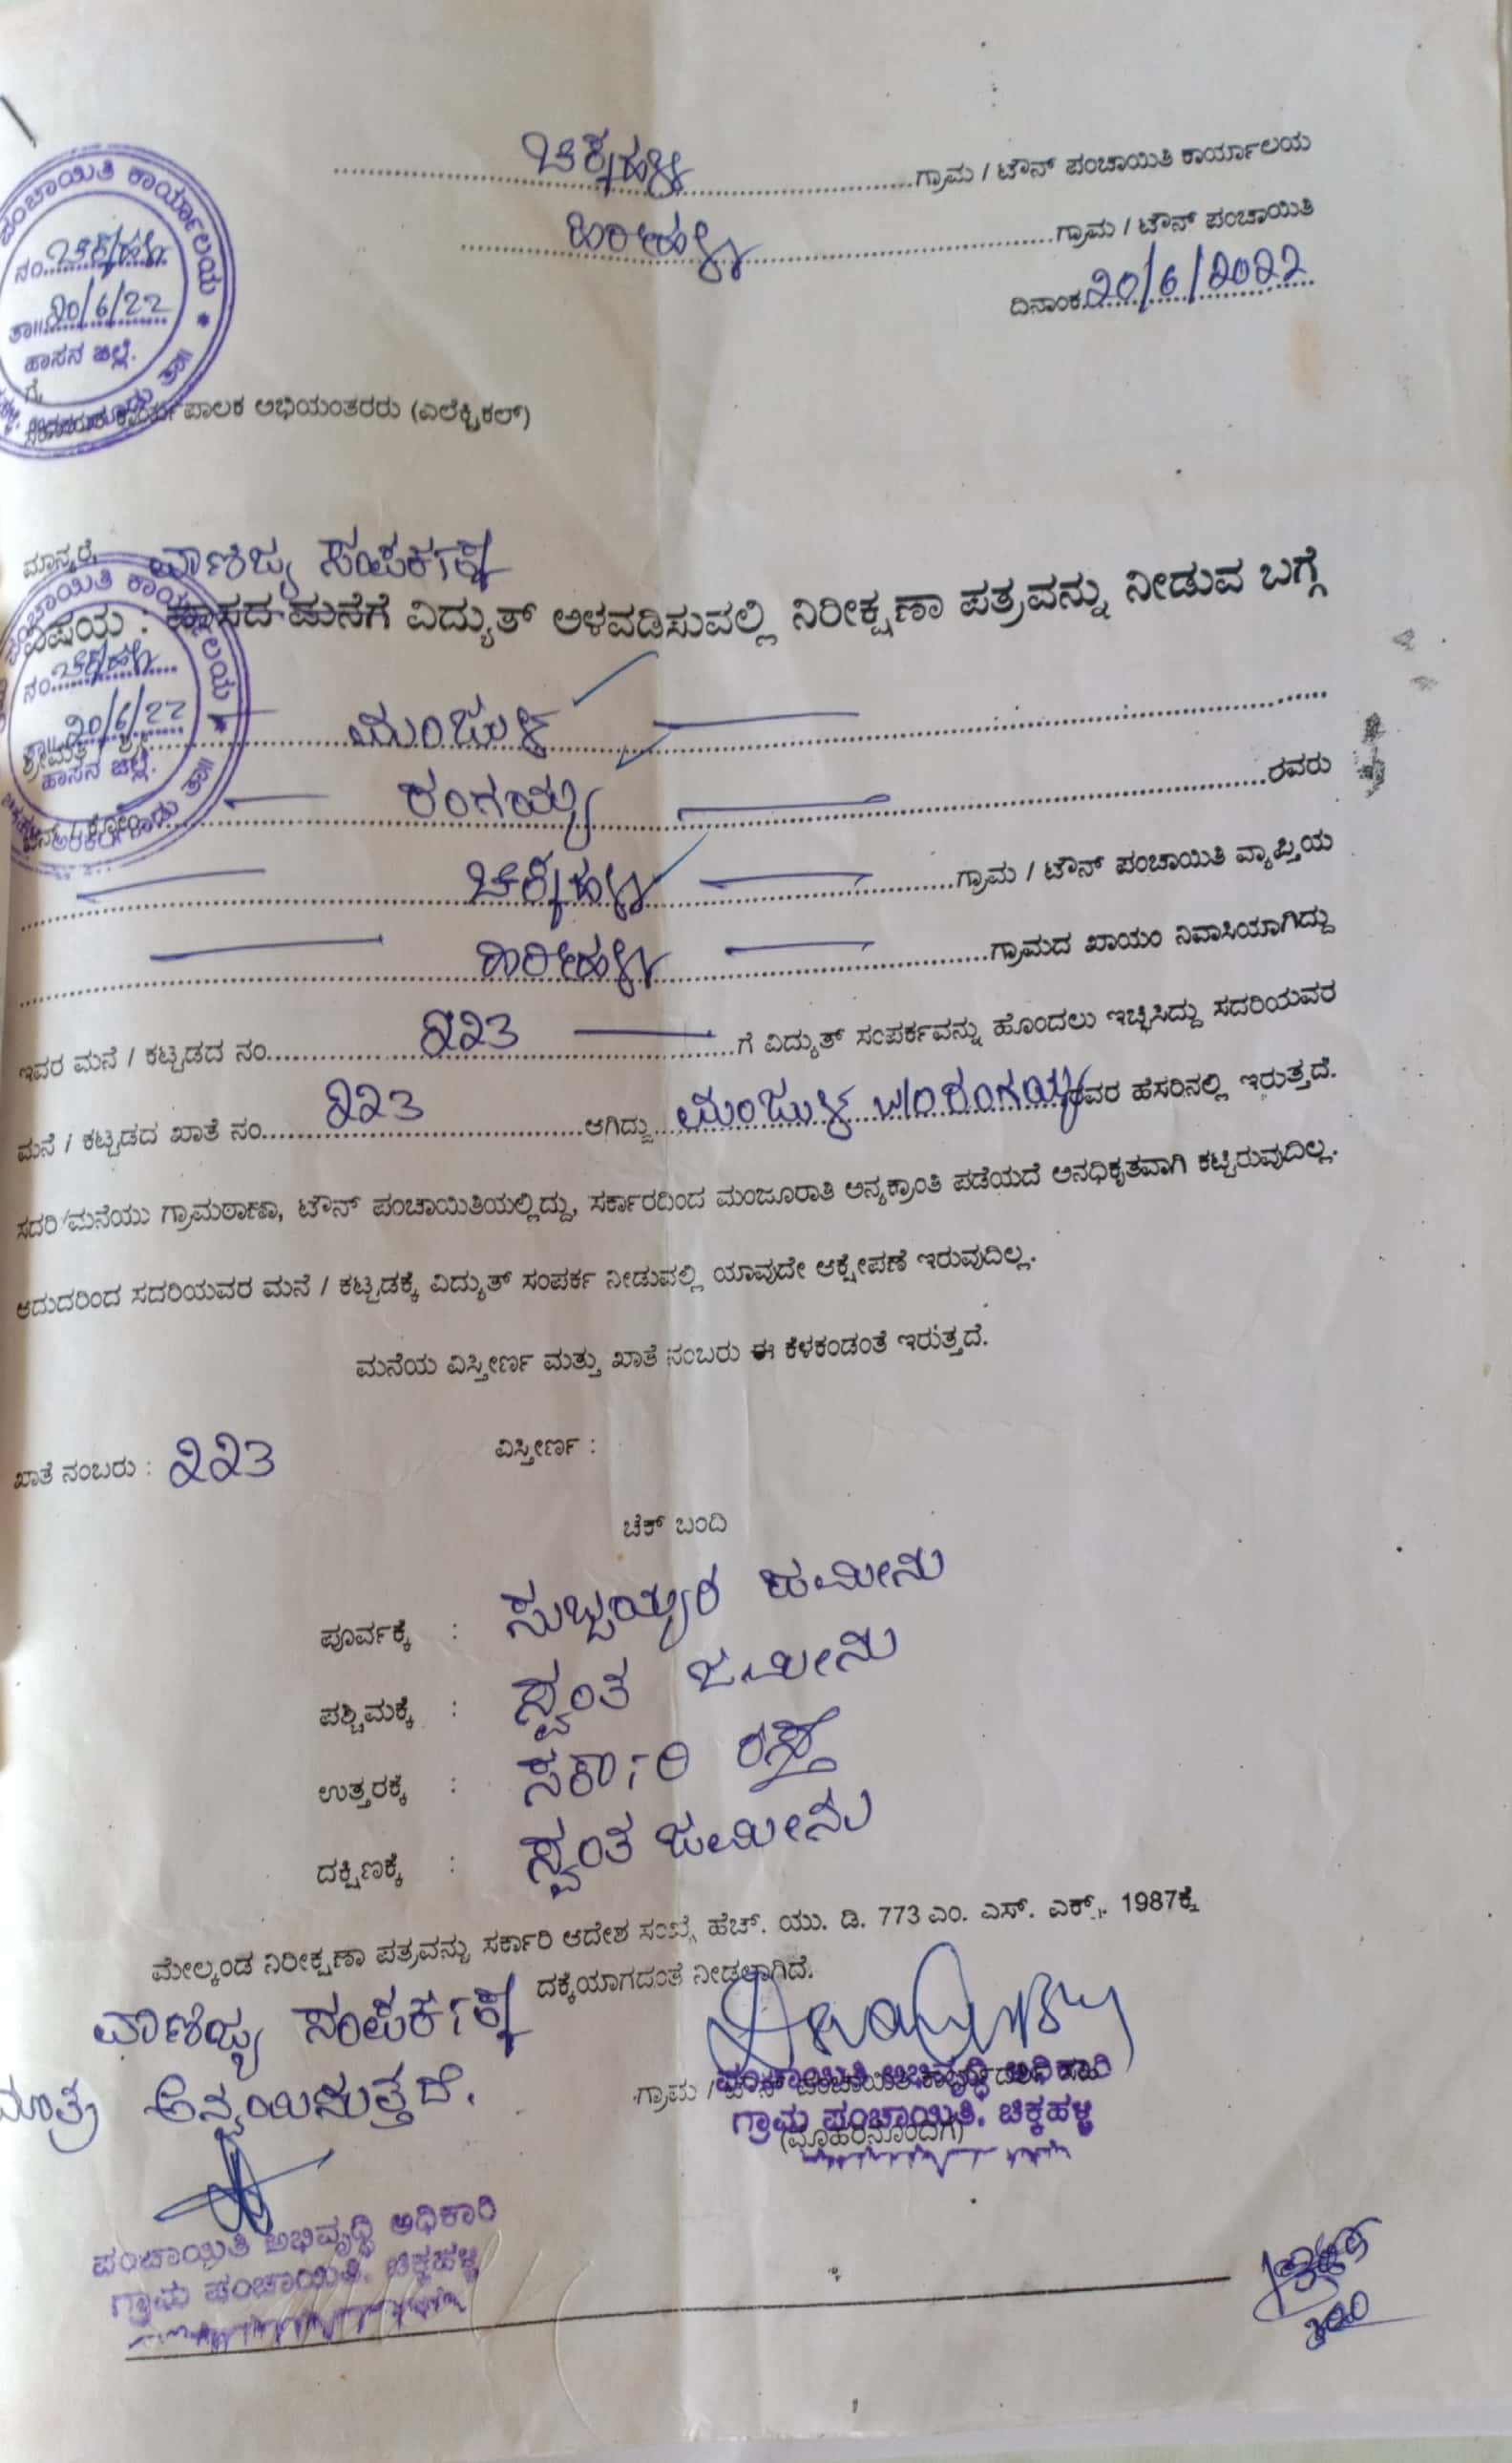 ಚಿಕ್ಕಹಳ್ಳಿ ಗ್ರಾಮ / ಟೌನ್ ಪಂಚಾಯಿತಿ ಕಾರ್ಯಾಲಯ
ಗ್ರಾಮ / ಟೌನ್ ಪಂಚಾಯಿತಿ
ದಿನಾಂಕ 20/6/2022
ಪಂಚಾಯಿತಿ ಕಾರ್ಯಾಲಯ
ನಂ. ಚಿಕ್ಕಹಳ್ಳಿ
ತಾ॥ 20/6/22
ಹಾಸನ ಜಿಲ್ಲೆ.
ಗೆ,
ಪಾಲಕ ಅಭಿಯಂತರರು (ಎಲೆಕ್ಟ್ರಿಕಲ್)
ಮಾನ್ಯರೆ,
ವಾಣಿಜ್ಯ ಸಂಪರ್ಕಕ್ಕೆ
ವಿಷಯ : ವಾಸದ ಮನೆಗೆ ವಿದ್ಯುತ್ ಅಳವಡಿಸುವಲ್ಲಿ ನಿರೀಕ್ಷಣಾ ಪತ್ರವನ್ನು ನೀಡುವ ಬಗ್ಗೆ
ಪಂಚಾಯಿತಿ ಕಾರ್ಯಾಲಯ
ನಂ. ಚಿಕ್ಕಹಳ್ಳಿ
ತಾ॥ 20/6/22
ಹಾಸನ ಜಿಲ್ಲೆ.
ಶ್ರೀಮತಿ / ಶ್ರೀ ಮಂಜುಳ
ರಂಗಯ್ಯ ರವರು
ಚಿಕ್ಕಹಳ್ಳಿ ಗ್ರಾಮ / ಟೌನ್ ಪಂಚಾಯಿತಿ ವ್ಯಾಪ್ತಿಯ
ಗ್ರಾಮದ ಖಾಯಂ ನಿವಾಸಿಯಾಗಿದ್ದು
ಇವರ ಮನೆ / ಕಟ್ಟಡದ ನಂ. 223 ಗೆ ವಿದ್ಯುತ್ ಸಂಪರ್ಕವನ್ನು ಹೊಂದಲು ಇಚ್ಛಿಸಿದ್ದು ಸದರಿಯವರ
ಮನೆ / ಕಟ್ಟಡದ ಖಾತೆ ನಂ. 223 ಆಗಿದ್ದು ಮಂಜುಳ W/O ರಂಗಯ್ಯ ರವರ ಹೆಸರಿನಲ್ಲಿ ಇರುತ್ತದೆ.
ಸದರಿ ಮನೆಯು ಗ್ರಾಮಠಾಣಾ, ಟೌನ್ ಪಂಚಾಯಿತಿಯಲ್ಲಿದ್ದು, ಸರ್ಕಾರದಿಂದ ಮಂಜೂರಾತಿ ಅನ್ಯಕ್ರಾಂತಿ ಪಡೆಯದೆ ಅನಧಿಕೃತವಾಗಿ ಕಟ್ಟಿರುವುದಿಲ್ಲ.
ಆದುದರಿಂದ ಸದರಿಯವರ ಮನೆ / ಕಟ್ಟಡಕ್ಕೆ ವಿದ್ಯುತ್ ಸಂಪರ್ಕ ನೀಡುವಲ್ಲಿ ಯಾವುದೇ ಆಕ್ಷೇಪಣೆ ಇರುವುದಿಲ್ಲ.
ಮನೆಯ ವಿಸ್ತೀರ್ಣ ಮತ್ತು ಖಾತೆ ನಂಬರು ಈ ಕೆಳಕಂಡಂತೆ ಇರುತ್ತದೆ.
ಖಾತೆ ನಂಬರು : 223 ವಿಸ್ತೀರ್ಣ :
ಚೆಕ್ ಬಂದಿ
ಪೂರ್ವಕ್ಕೆ : ಸುಬ್ಬಯ್ಯರ ಜಮೀನು
ಪಶ್ಚಿಮಕ್ಕೆ : ಸ್ವಂತ ಜಮೀನು
ಉತ್ತರಕ್ಕೆ : ಸರ್ಕಾರಿ ರಸ್ತೆ
ದಕ್ಷಿಣಕ್ಕೆ : ಸ್ವಂತ ಜಮೀನು
ಮೇಲ್ಕಂಡ ನಿರೀಕ್ಷಣಾ ಪತ್ರವನ್ನು ಸರ್ಕಾರಿ ಆದೇಶ ಸಂಖ್ಯೆ ಹೆಚ್. ಯು. ಡಿ. 773 ಎಂ. ಎಸ್. ಎಕ್ಸ್. 1987ಕ್ಕೆ
ದಕ್ಕೆಯಾಗದಂತೆ ನೀಡಲಾಗಿದೆ.
ವಾಣಿಜ್ಯ ಸಂಪರ್ಕಕ್ಕೆ
ಮಾತ್ರ ಅನ್ವಯಿಸುತ್ತದೆ.
ಪಂಚಾಯಿತಿ ಅಭಿವೃದ್ಧಿ ಅಧಿಕಾರಿ
ಗ್ರಾಮ ಪಂಚಾಯಿತಿ, ಚಿಕ್ಕಹಳ್ಳಿ
(ಮೊಹರಿನೊಂದಿಗೆ)
ಪಂಚಾಯಿತಿ ಅಭಿವೃದ್ಧಿ ಅಧಿಕಾರಿ
ಗ್ರಾಮ ಪಂಚಾಯಿತಿ, ಚಿಕ್ಕಹಳ್ಳಿ